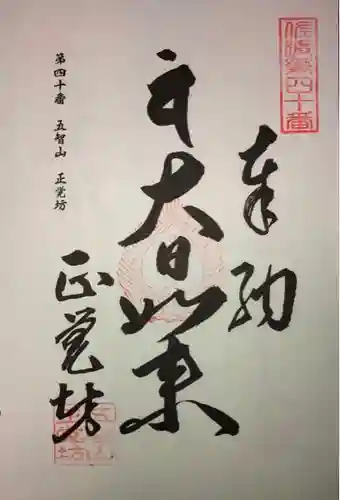 佐渡第四十番
奉納
大日如来
第四十番 五智山 正覚坊
正覚坊